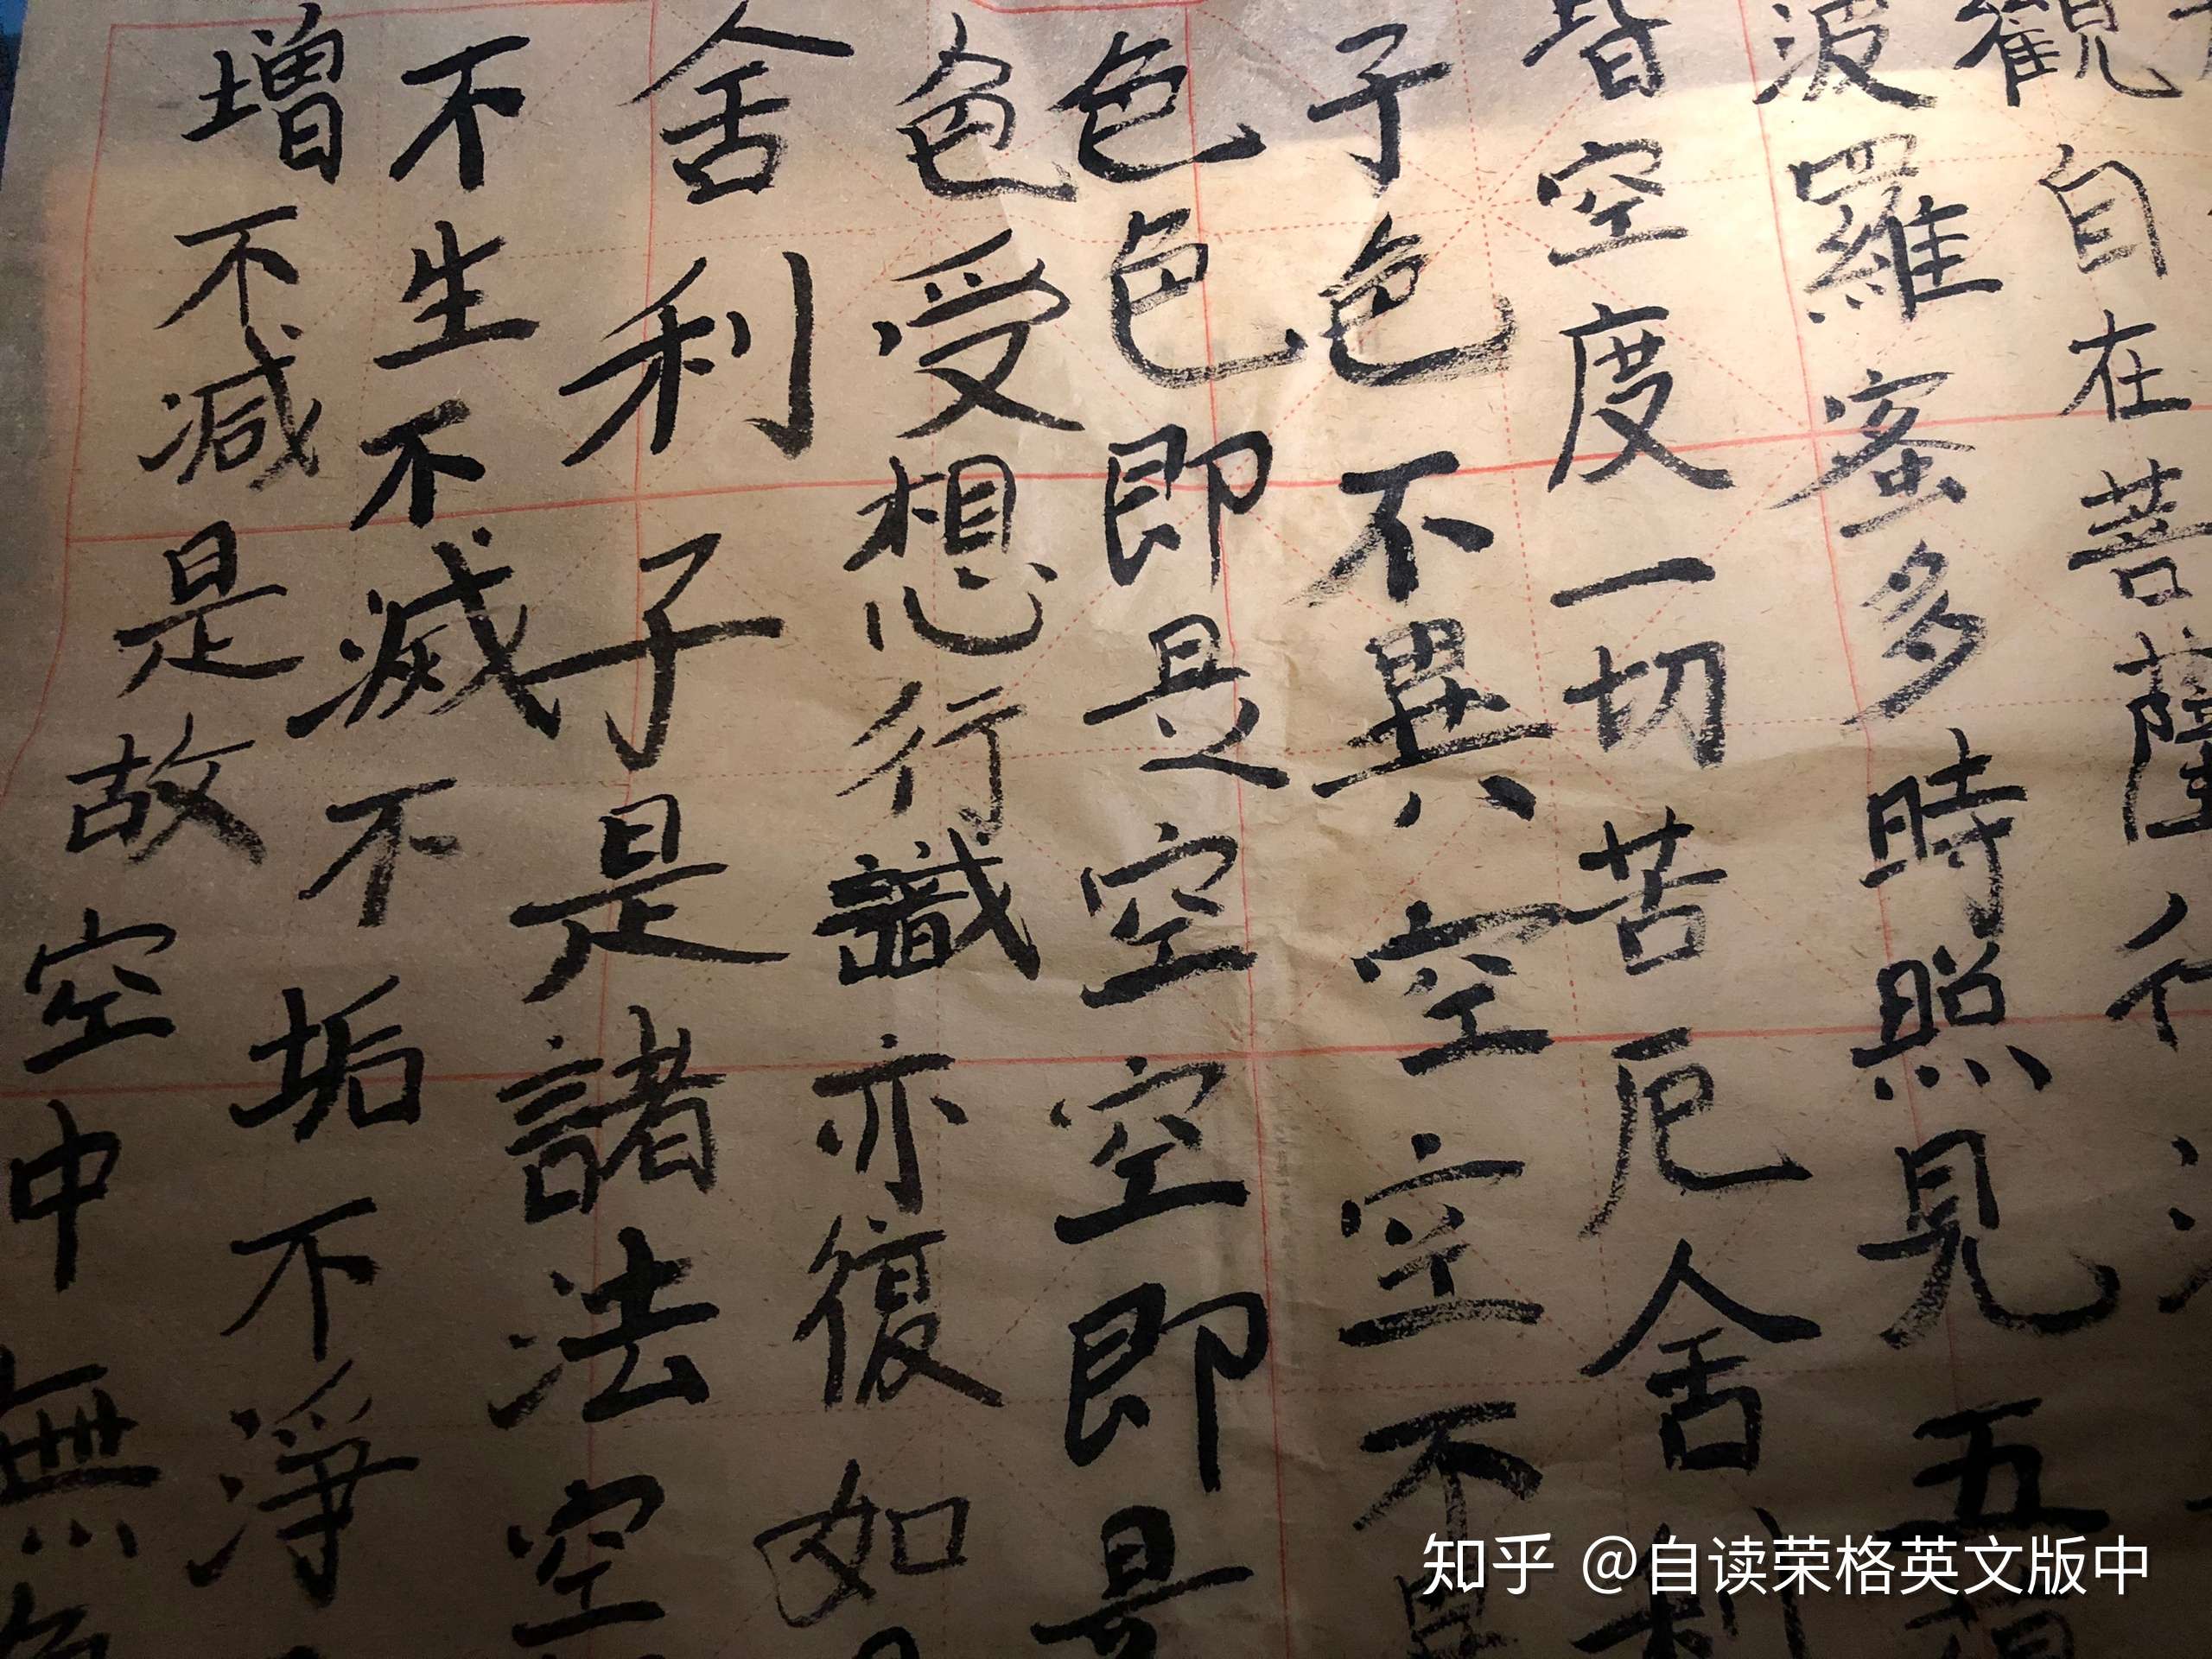 觀自在菩薩行
波羅蜜多時照見五
皆空度一切苦厄舍利
子色不異空空不異
色色即是空空即是
色受想行識亦復如是
舍利子是諸法空
不生不滅不垢不淨
增不減是故空中無色
知乎 @自读荣格英文版中